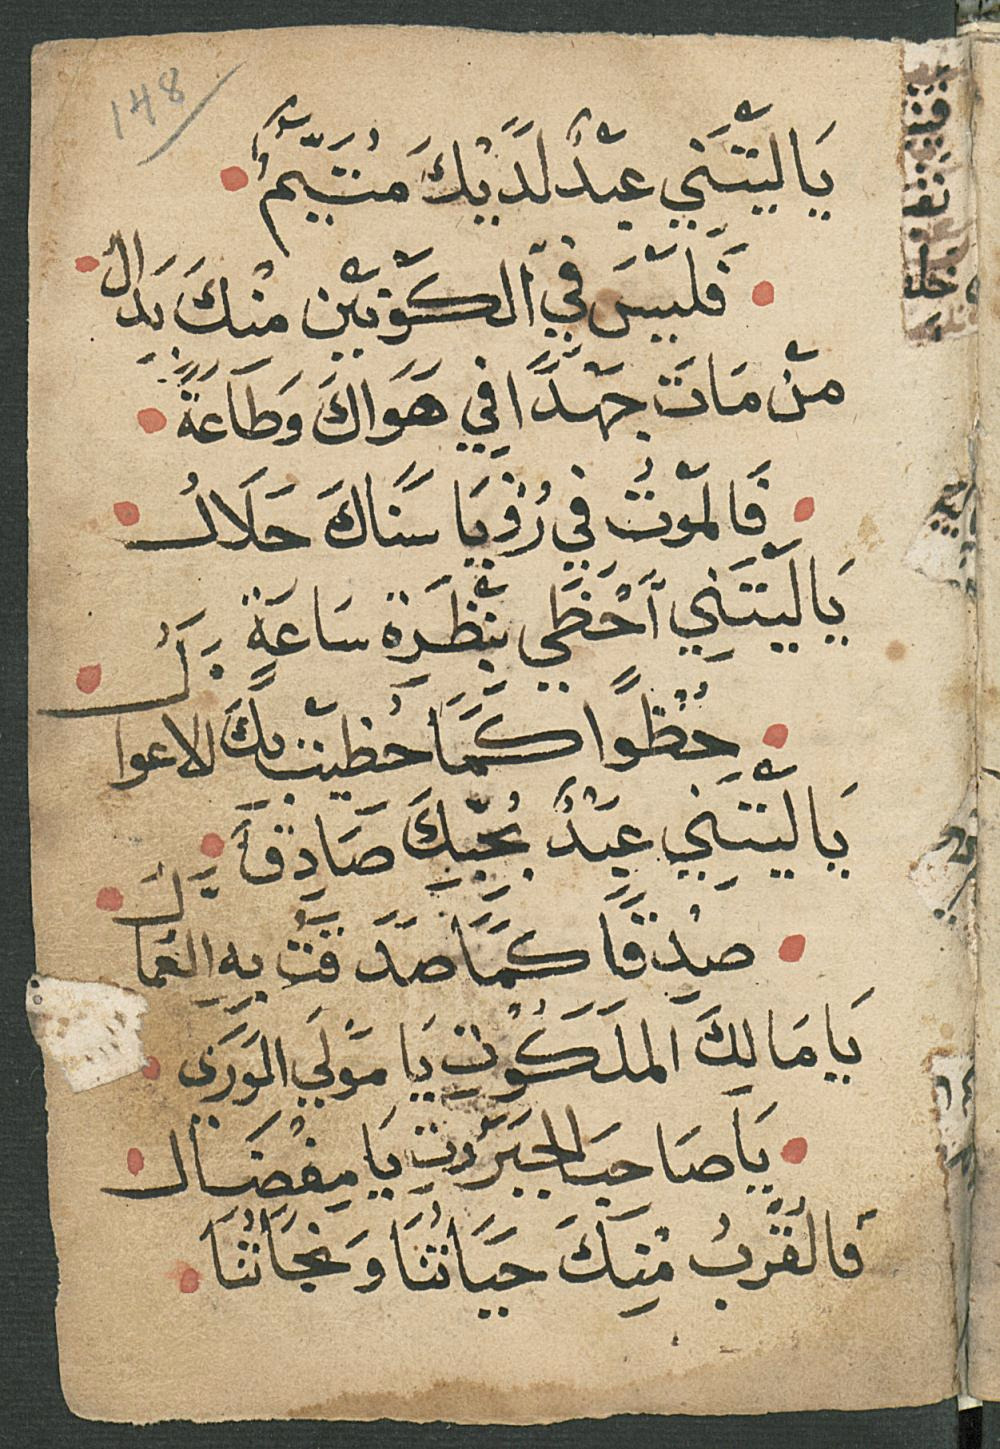 148
يَا لَيْتَنِي عَبْدٌ لَدَيْكَ مُتَيَّمٌ
فَلَيْسَ فِي الكَوْنَيْنِ مِنْكَ بَدَالُ
مَنْ مَاتَ جَهْدًا فِي هَوَاكَ وَطَاعَةً
فَالمَوْتُ فِي رُؤْيَا سَنَاكَ حَلَالُ
يَا لَيْتَنِي أَحْظَى بِنَظْرَةِ سَاعَةٍ
حُظْوًا كَمَا حُظِيَتْ بِكَ الاعوالُ
يَا لَيْتَنِي عَبْدٌ بِحُبِّكَ صَادِقًا
صِدْقًا كَمَا صَدَقَتْ بِهِ العُمَّالُ
يَا مَالِكَ المَلَكُوتِ يَا مَوْلَى الوَرَى
يَا صَاحِبَ الجَبَرُوتِ يَا مِفْضَالُ
فَالقُرْبُ مِنْكَ حَيَاتُنَا وَنَجَاتُنَا